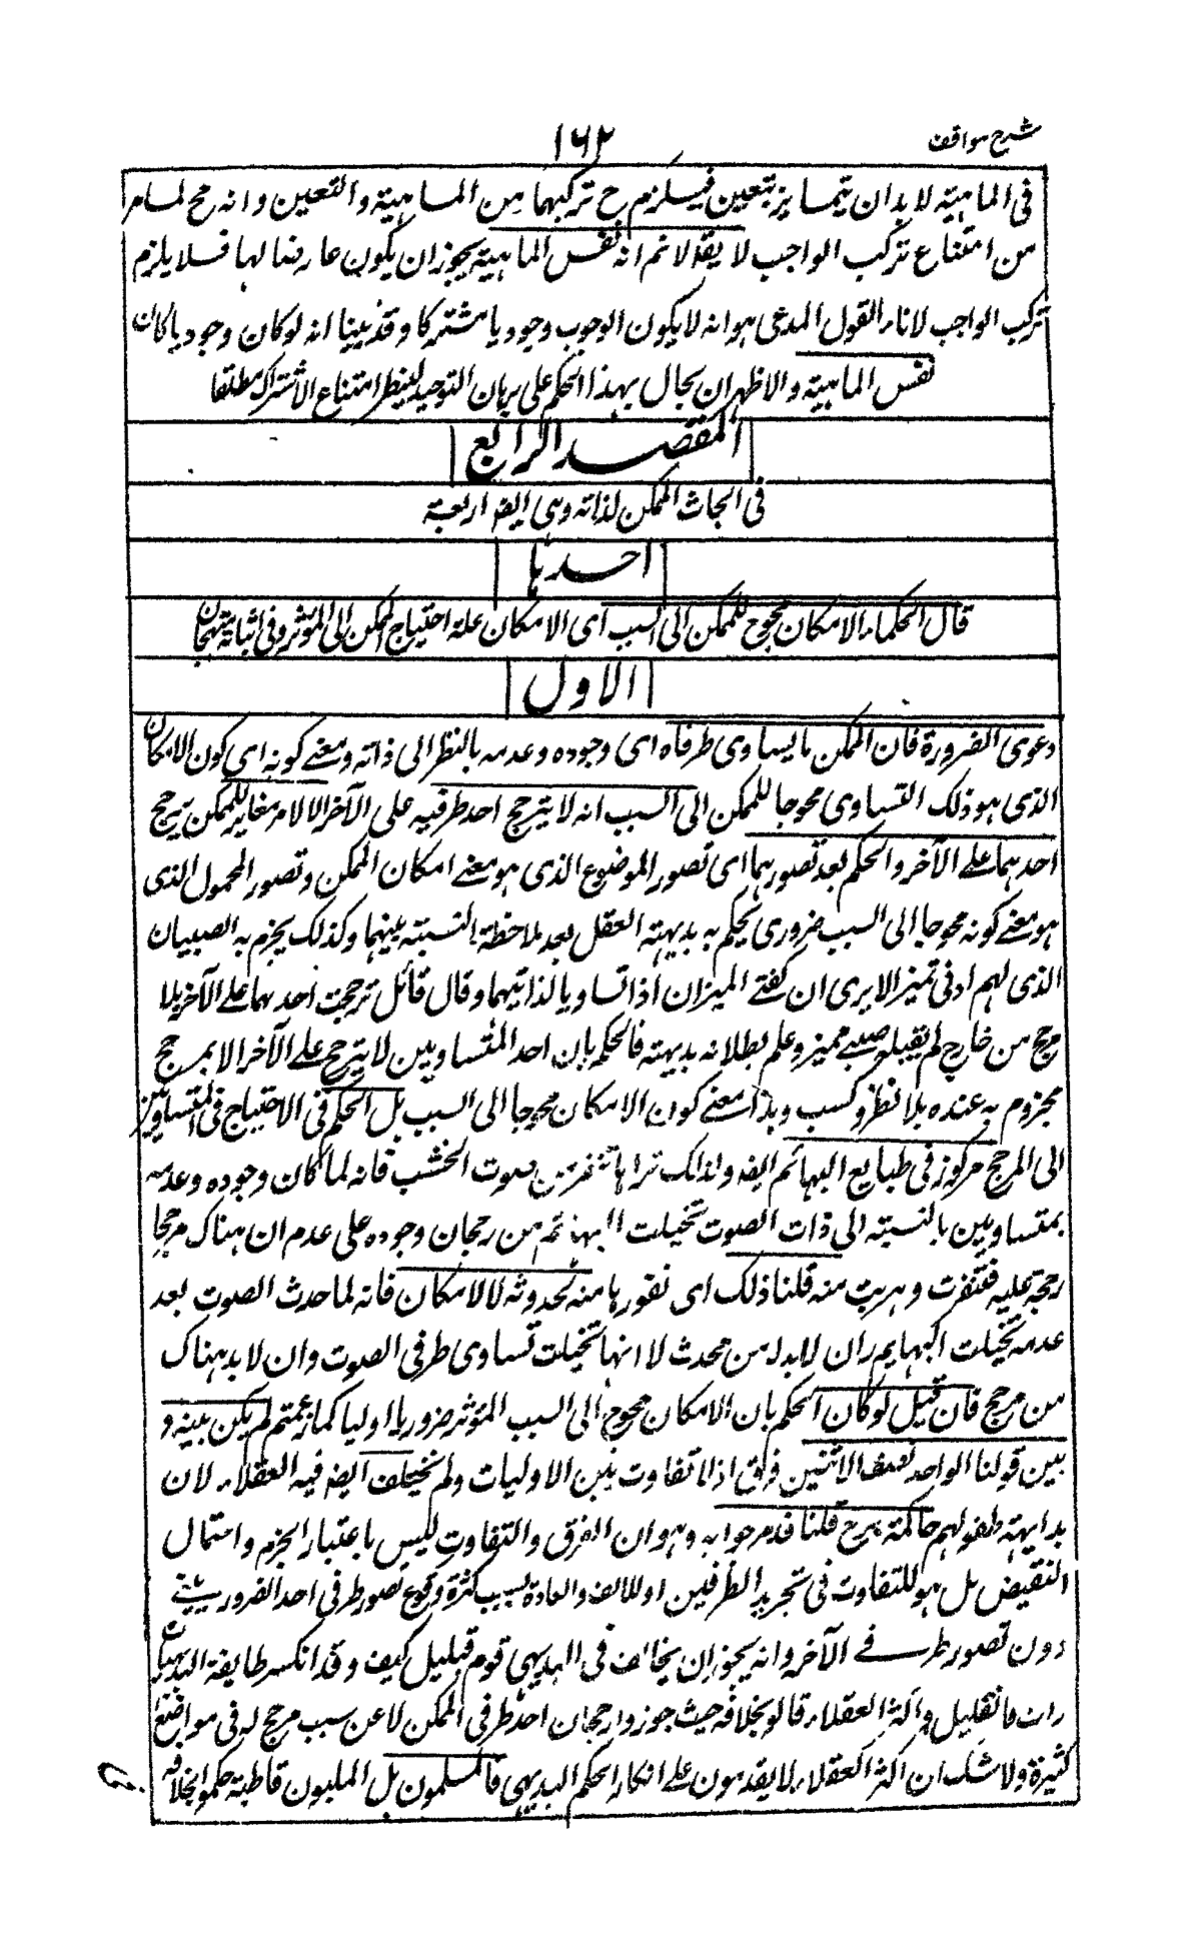 شرح مواقف
۱۶۲
فى الماهية لا بد ان يتمايز بتعين فيلزم ح تركبهما من الماهية والتعين وانه مح لما مر
من امتناع تركب الواجب لا يقة لا نم انه نفس الماهية يجوز ان يكون عارضا لها فلا يلزم
تركب الواجب لانا نقول المدعى هو انه لا يكون الوجوب وجوديا مشتركا وقد بينا انه لو كان وجوديا كان
نفس الماهية والاظهر ان يحال بهذا الحكم على برهان التوحيد لينظر امتناع الاشتراك مطلقا
المقصد الرابع
فى ابحاث الممكن لذاته وهى ايضا اربعة
احدها
قال الحكماء الامكان محوج للممكن الى السبب اى الامكان علة احتياج الممكن الى المؤثر وفى اثباته منهجان
الاول
دعوى الضرورة فان الممكن ما يساوى طرفاه اى وجوده وعدمه بالنظر الى ذاته ومعنے كونه اى كون الامكان
الذى هو ذلك التساوى محوجا للممكن الى السبب انه لا يترجح احد طرفيه على الآخر الا لامر مغاير للممكن يرجح
احدهما على الآخر والحكم بعد تصورهما اى تصور الموضوع الذى هو معنے امكان الممكن وتصور المحمول الذى
هو معنے كونه محوجا الى السبب ضرورى يحكم به بديهة العقل بعد ملاحظة النسبة بينهما وكذلك يجزم به الصبيان
الذى لهم ادنى تميز الا يرى ان كفتے الميزان اذا تساويا لذاتيهما وقال قائل ترجحت احدهما على الآخر بلا
مرجح من خارج لم يقبله صبے مميز وعلم بطلانه بديهة فالحكم بان احد المتساويين لا يترجح على الآخر الا بمرجح
مجزوم به عنده بلا نظر وكسب وهذا معنے كون الامكان محوجا الى السبب بل الحكم فى الاحتياج فى المتساويين
الى المرجح مركوز فى طبايع البهائم ايضا ولذلك تراها تنفر من صوت الخشب فانه لما كان وجوده وعدمه
بمتساويين بالنسبة الى ذات الصوت تخيلت البهائم من رجحان وجوده على عدم ان هناك مرجحا
رجحه عليه فتنفرت وهربت منه قلنا ذلك اى نفورها منه لحدوثه لا لامكان فانه لما حدث الصوت بعد
عدمه تخيلت البهايم ان لا بد له من محدث لا انها تخيلت تساوى طرفى الصوت وان لا بد هناك
من مرجح فان قيل لو كان الحكم بان الامكان محوج الى السبب المؤثر ضروريا اوليا كما زعمتم لم يكن بينه و
بين قولنا الواحد نصف الاثنين فرق اذ لا تفاوت بين الاوليات ولم يختلف ايضا فيه العقلاء لان
بداهة عقولهم حاكمة به ح قلنا قد مر جوابه وهو ان الفرق والتفاوت ليس باعتبار الجزم واحتمال
النقيض بل هو للتفاوت فى تجريد الطرفين او للالف والعادة بسبب كثرة وقوع تصور طرفى احد الضروريين
دون تصور طرفے الآخر وانه يجوز ان يخالف فى البديهى قوم قليل كيف وقد انكر طايفة البديهيات
راسا فان قيل واكثر العقلاء قالوا بخلافه حيث جوزوا رجحان احد طرفى الممكن لا عن سبب مرجح له فى مواضع
كثيرة ولا شك ان اكثر العقلاء لا يقدمون على انكار الحكم البديهى فالمسلمون بل المليون قاطبة حكموا بخلافه